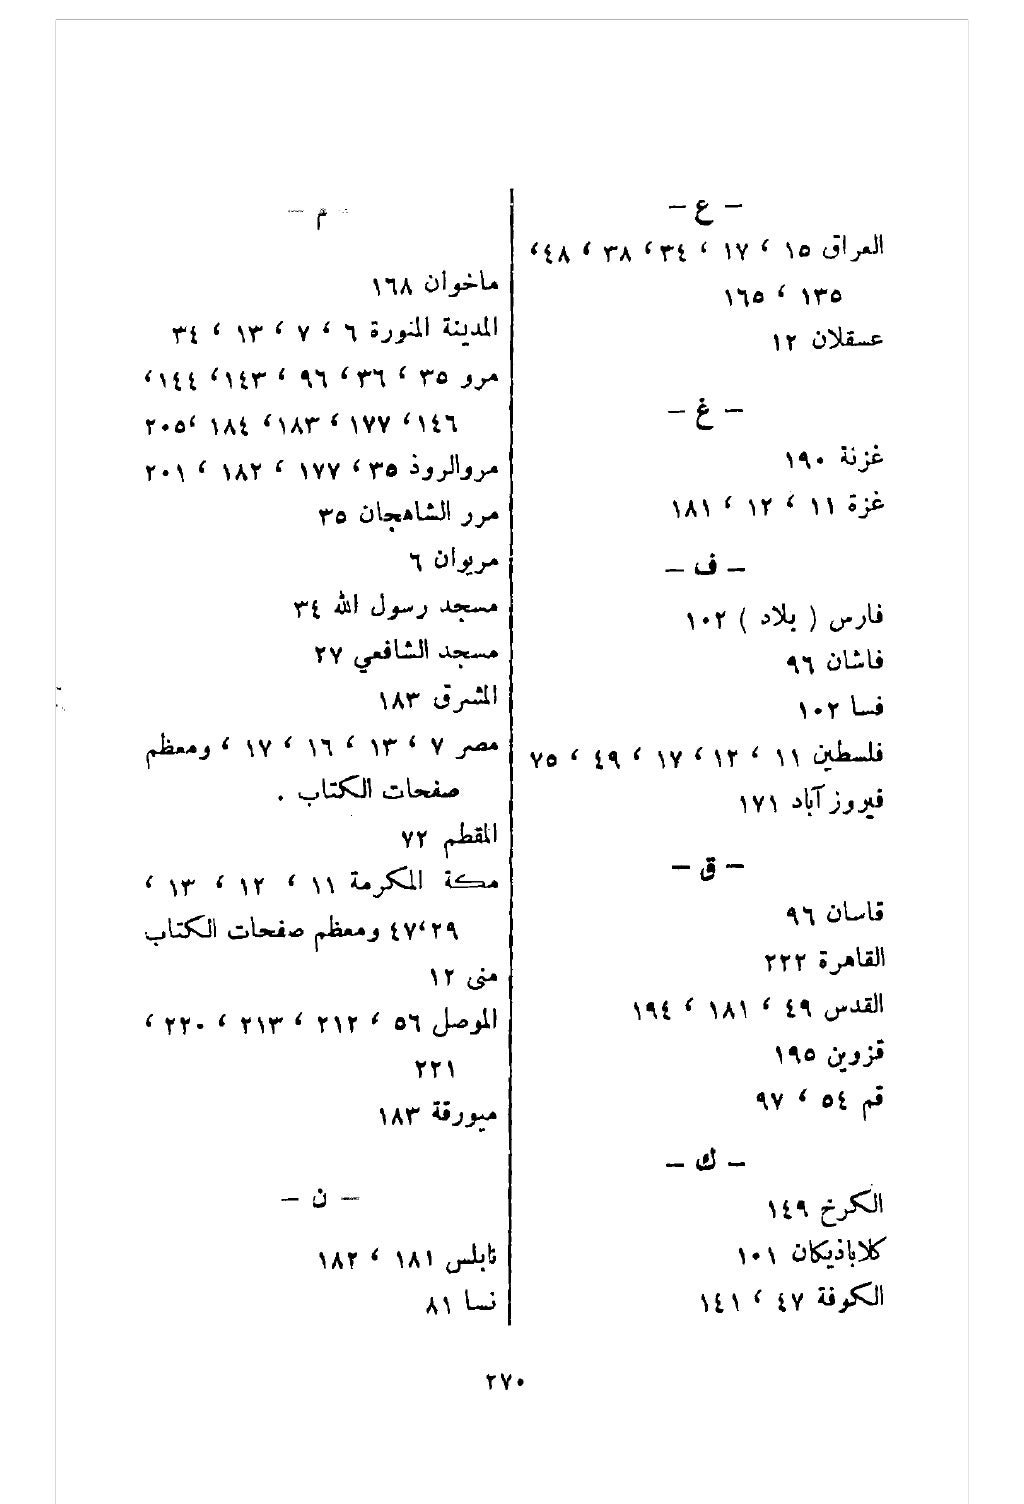 – ع –
العراق ١٥ ، ١٧ ، ٣٤ ، ٣٨ ، ٤٨ ،
١٣٥ ، ١٦٥
عسقلان ١٢
– غ –
غزنة ١٩٠
غزة ١١ ، ١٢ ، ١٨١
– ف –
فارس ( بلاد ) ١٠٢
فاشان ٩٦
فسا ١٠٢
فلسطين ١١ ، ١٢ ، ١٧ ، ٤٩ ، ٧٥
فيروز آباد ١٧١
– ق –
قاسان ٩٦
القاهرة ٢٢٢
القدس ٤٩ ، ١٨١ ، ١٩٤
قزوين ١٩٥
قم ٥٤ ، ٩٧
– ك –
الكرخ ١٤٩
كلاباذيكان ١٠١
الكوفة ٤٧ ، ١٤١
– م –
ماخوان ١٦٨
المدينة المنورة ٦ ، ٧ ، ١٣ ، ٣٤
مرو ٣٥ ، ٣٦ ، ٩٦ ، ١٤٣ ، ١٤٤ ،
١٤٦ ، ١٧٧ ، ١٨٣ ، ١٨٤ ، ٢٠٥
مروالروذ ٣٥ ، ١٧٧ ، ١٨٢ ، ٢٠١
مرر الشاهجان ٣٥
مريوان ٦
مسجد رسول الله ٣٤
مسجد الشافعي ٢٧
المشرق ١٨٣
مصر ٧ ، ١٣ ، ١٦ ، ١٧ ، ومعظم
صفحات الكتاب .
المقطم ٧٢
مكة المكرمة ١١ ، ١٢ ، ١٣ ،
٢٩ ، ٤٧ ومعظم صفحات الكتاب
منى ١٢
الموصل ٥٦ ، ٢١٢ ، ٢١٣ ، ٢٢٠ ،
٢٢١
ميورقة ١٨٣
– ن –
نابلس ١٨١ ، ١٨٢
نسا ٨١
٢٧٠